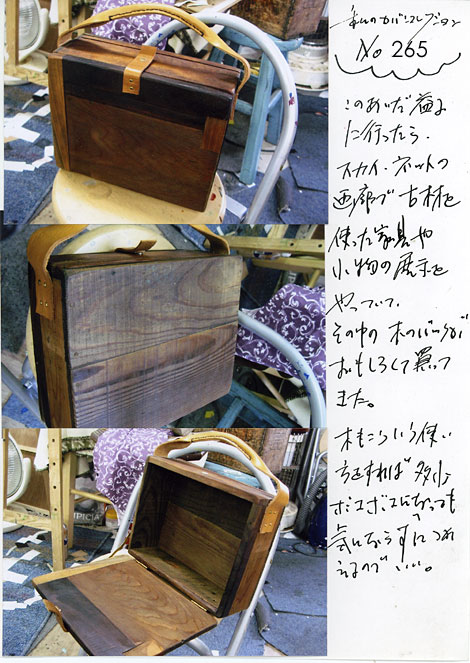 私のカバンコレクション
No 265
このあいだ益子
に行ったら、
スカイ・ネットの
画廊で古材を
使った家具や
小物の展示を
やっていて、
その中の木のバッグが
おもしろくて買って
きた。
木もこういう使い
方をすれば多少
ボコボコになっても
気にならずにつか
えるのでいい。